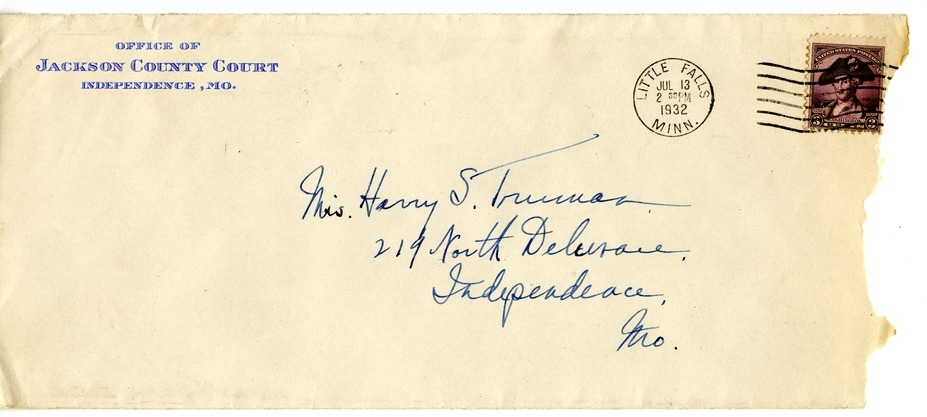 OFFICE OF
JACKSON COUNTY COURT
INDEPENDENCE, MO.
LITTLE FALLS
JUL 13
2 PM
1932
MINN.
UNITED STATES POSTAGE
3 WASHINGTON 3
Mrs. Harry S. Truman
219 North Delaware.
Independence,
Mo.